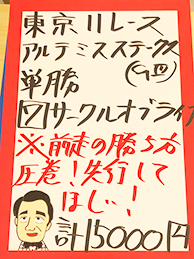 東京11レース
アルテミスステークス
(GⅢ)
単勝
7サークルオブライフ
※前走の勝ち方
圧巻!先行して
ほしい!
計15000円